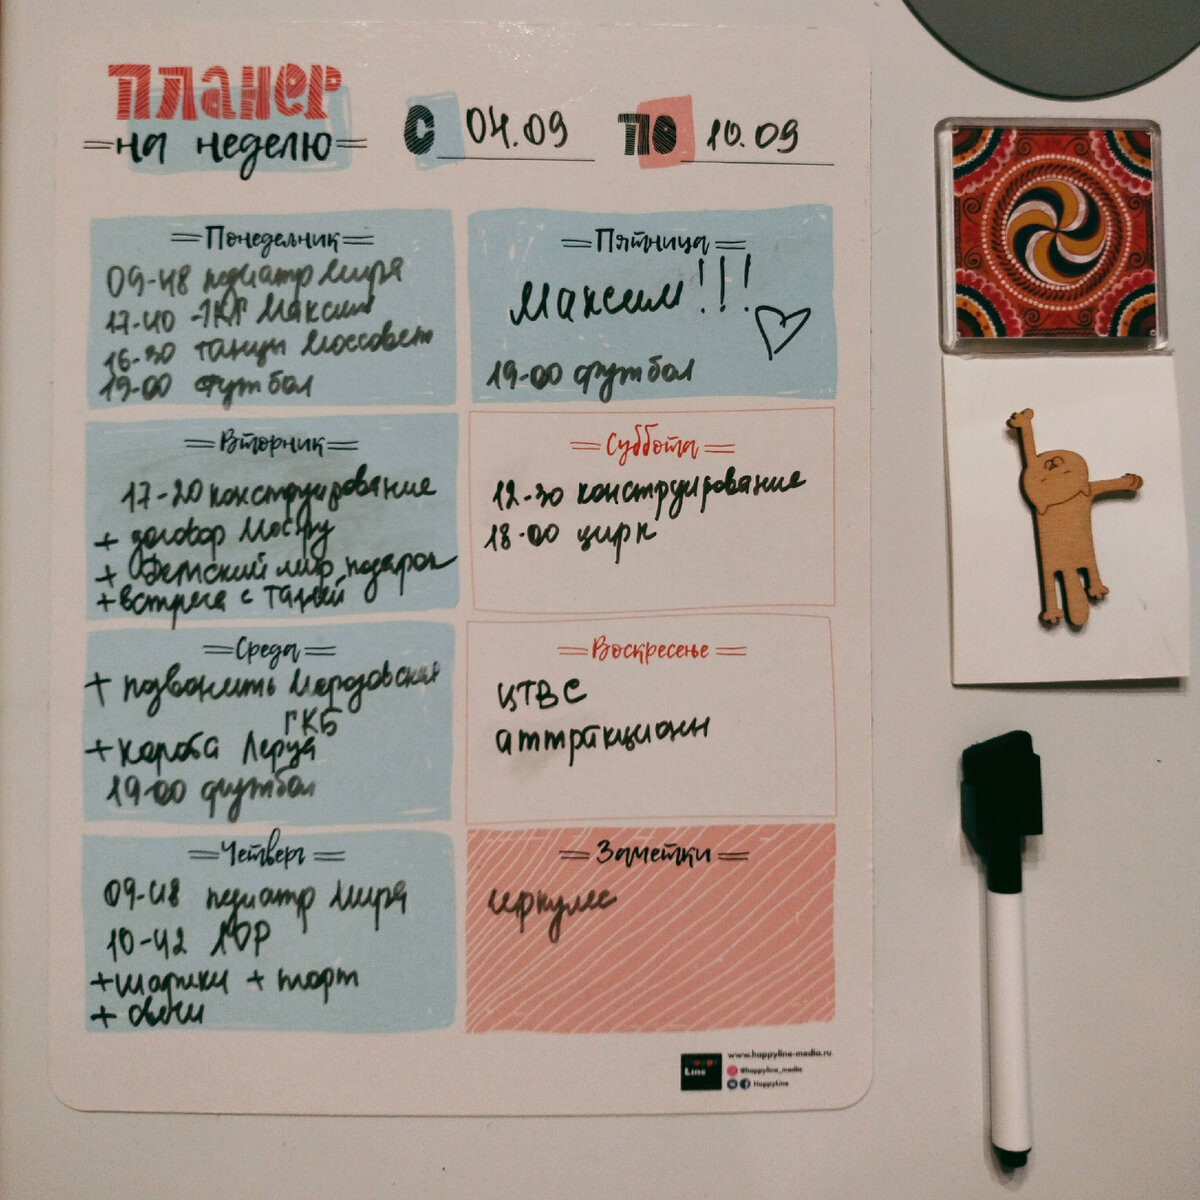 Планер
на неделю
С 04.09 ПО 10.09
Понедельник
09-48 педиатр Мира
17-40 Максим
16-30 танцы Моссовет
19-00 футбол
Вторник
17-20 конструирование
+ договор Мосру
+ Детский мир подарок
+ встреча с Таней
Среда
+ позвонить Морозовская
ГКБ
+ короба Леруа
19-00 футбол
Четверг
09-48 педиатр Мира
10-42 ЛОР
+ шарики + торт
+ свечи
Пятница
Максим!!!
19-00 футбол
Суббота
12-30 конструирование
18-00 цирк
Воскресенье
ЦТВС
аттракцион
Заметки
геркулес
Line
www.happyline-media.ru
@happyline_media
HappyLine